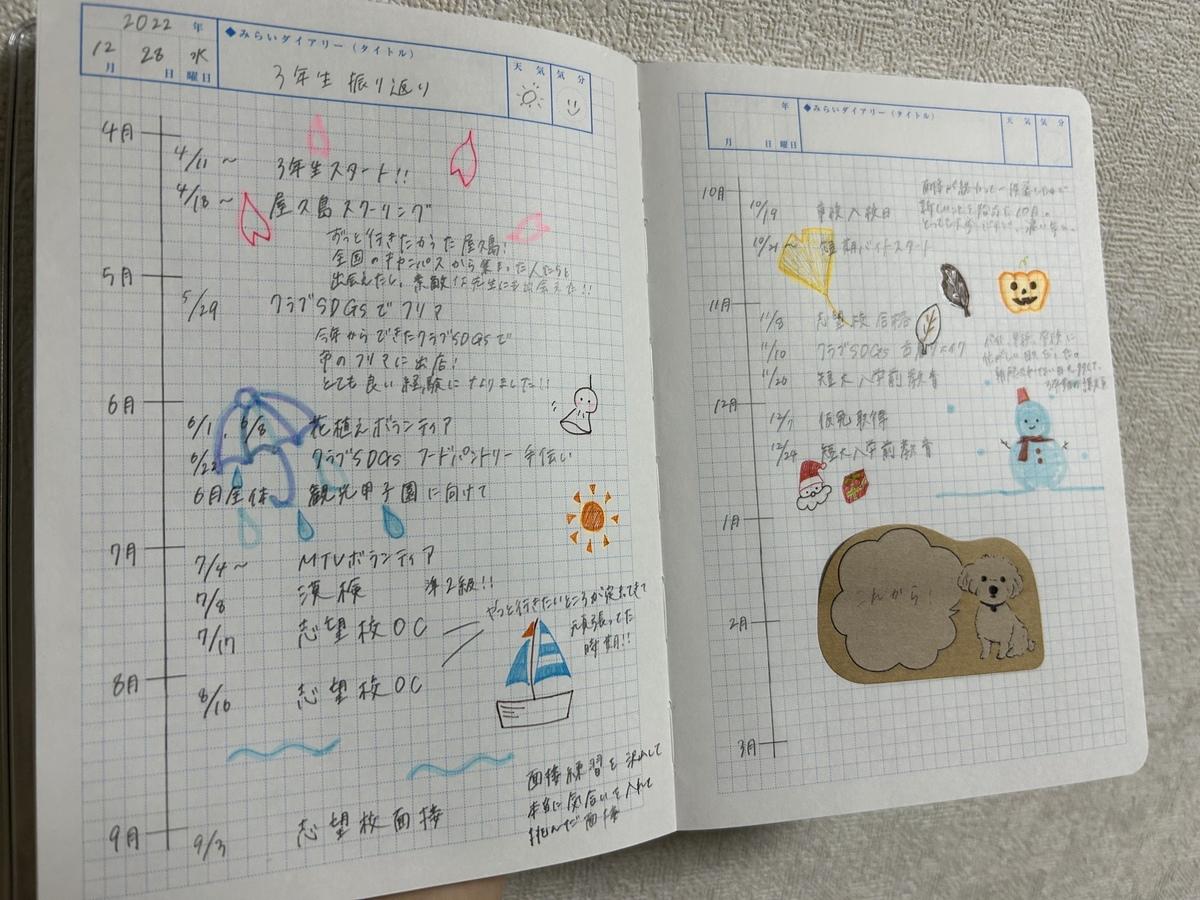 2022 年
12 月 28 日 水 曜日
◆みらいダイアリー（タイトル）
3年生 振り返り
天気
気分
4月
4/11 ~ 3年生スタート!!
4/18 ~ 屋久島スクーリング
ずっと行きたかった屋久島!
全国のキャンパスから集まった人たちと
出会えたし、素敵な先生にも出会えた!!
5月
5/29 クラブSDGsでフリマ
今年からできたクラブSDGsで
市のフリマに出店!
とても良い経験になりました!!
6月
6/1, 6/8 花植えボランティア
6/22 クラブSDGs フードパントリー手伝い
6月全体 観光甲子園に向けて
7月
7/4~ MTVボランティア
7/8 漢検 準2級!!
7/17 志望校OC
やっと行きたいところが定まってきて
頑張ってた
時期!!
8月
8/10 志望校OC
面接練習を沢山して
本当に気合いを入れて
挑んだ面接
9月
9/3 志望校面接
年
月 日 曜日
◆みらいダイアリー（タイトル）
天気
気分
10月
10/19
10/21 ~ 短期バイトスタート
11月
11/8 志望校合格
11/10 クラブSDGs
11/20 短大入学前教育
12月
12/7 仮免取得
12/24 短大入学前教育
1月
これから!
2月
3月